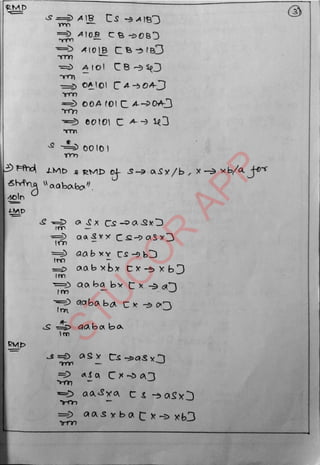 RMD
3
S ⇒rm A1B [S → A1B]
⇒rm A10B [B → 0B]
⇒rm A101B [B → 1B]
⇒rm A101 [B → ε]
⇒rm 0A101 [A → 0A]
⇒rm 00A101 [A → 0A]
⇒rm 00101 [A → ε]
S *⇒rm 00101
Find LMD & RMD of S → aSx/b, x → xb/a for
string "aababa".
soln
LMD
S ⇒lm aSx [S → aSx]
⇒lm aaSxx [S → aSx]
⇒lm aabxx [S → b]
⇒lm aabxbx [x → xb]
⇒lm aababx [x → a]
⇒lm aababa [x → a]
S *⇒lm aababa
RMD
S ⇒rm aSx [S → aSx]
⇒rm aSa [x → a]
⇒rm aaSxa [S → aSx]
⇒rm aaSxba [x → xb]
STUCOR APP